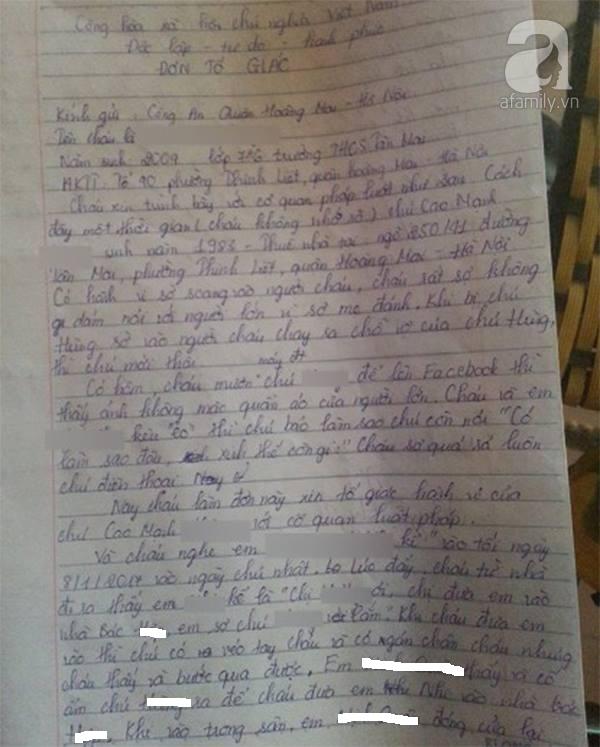 Cộng hòa xã hội chủ nghĩa Việt Nam
Độc lập - tự do - hạnh phúc
ĐƠN TỐ GIÁC
a
afamily.vn
Kính gửi : Công An Quận Hoàng Mai - Hà Nội
Tên cháu là
Năm sinh 2004, lớp trường THCS Tân Mai
HKTT: Tổ 90 phường Thịnh Liệt, quận Hoàng Mai - Hà Nội
Cháu xin trình bày với cơ quan pháp luật như sau. Cách
đây một thời gian (cháu không nhớ rõ) chú Cao Mạnh
sinh năm 1983 - Thuê nhà tại ngõ 250/ đường
Tân Mai, phường Thịnh Liệt, quận Hoàng Mai - Hà Nội
Có hành vi sờ soạng vào người cháu, cháu rất sợ không
dám nói với người lớn vì sợ mẹ đánh. Khi bị chú
Hùng sờ vào người cháu chạy ra chỗ vợ của chú Hùng,
thì chú mới thôi.
Có hôm, cháu mượn chú máy đt để lên Facebook thì
thấy ảnh không mặc quần áo của người lớn. Cháu và em
kêu "eo" thì chú bảo làm sao chú còn nói "Có
làm sao đâu, xinh thế còn gì" Cháu sợ quá luôn
chú điện thoại
Nay cháu làm đơn này xin tố giác hành vi của
chú Cao Mạnh với cơ quan luật pháp.
Và cháu nghe em kể "vào tối ngày
8/1/2017 vào ngày chủ nhật. Lúc đấy, cháu từ nhà
đi ra thấy em kể là "Chị ơi, chị đưa em vào
nhà bác em sợ chú lắm". Khi cháu đưa em
vào thì chú có véo tay cháu và có ngăn chặn cháu nhưng
cháu thấy và bước qua được. Em thấy và cố
ẩn chú ra để cháu đưa em vào nhà bác
Khi vào trong sân, em đóng cửa lại